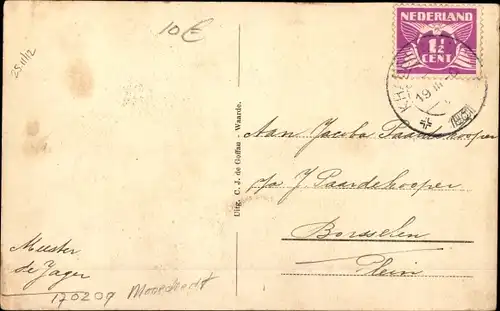 10 €
25.11/12
NEDERLAND
1½
CENT
19 III
Uitg. C. J. de Goffau - Waarde.
Aan Jacoba Paardekooper
p/a J Paardekooper
Borsselen
Plein
Meester
de Jager
170209